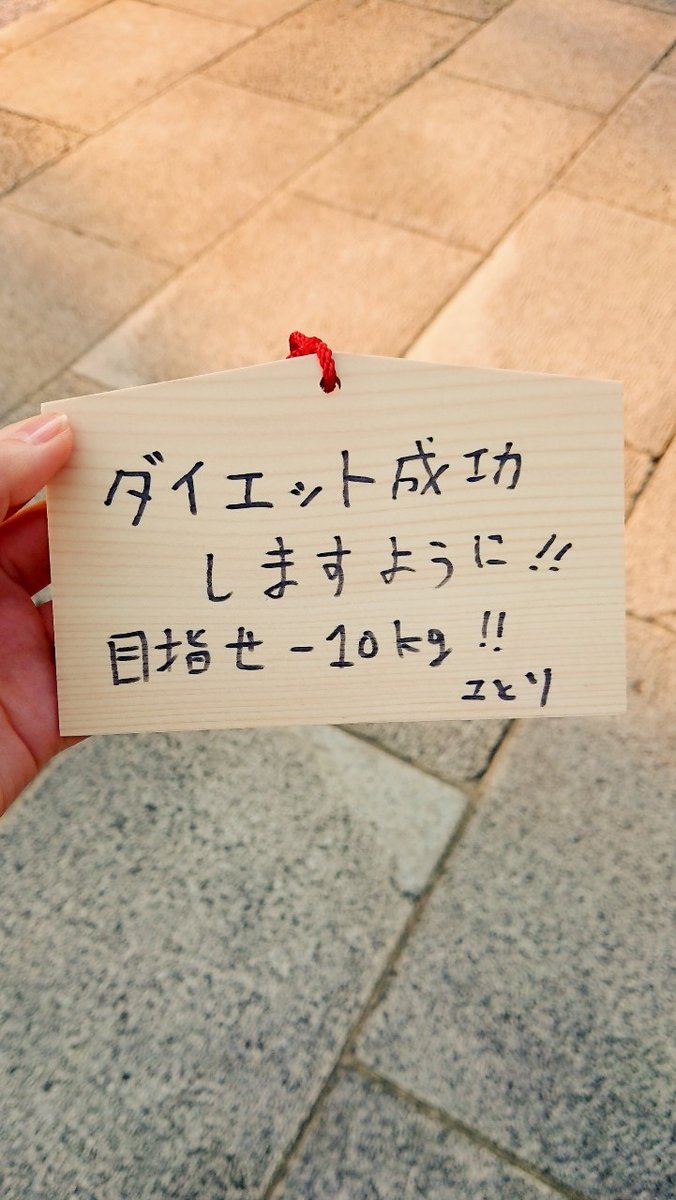 ダイエット成功
しますように!!
目指せ-10kg!!
ユとり